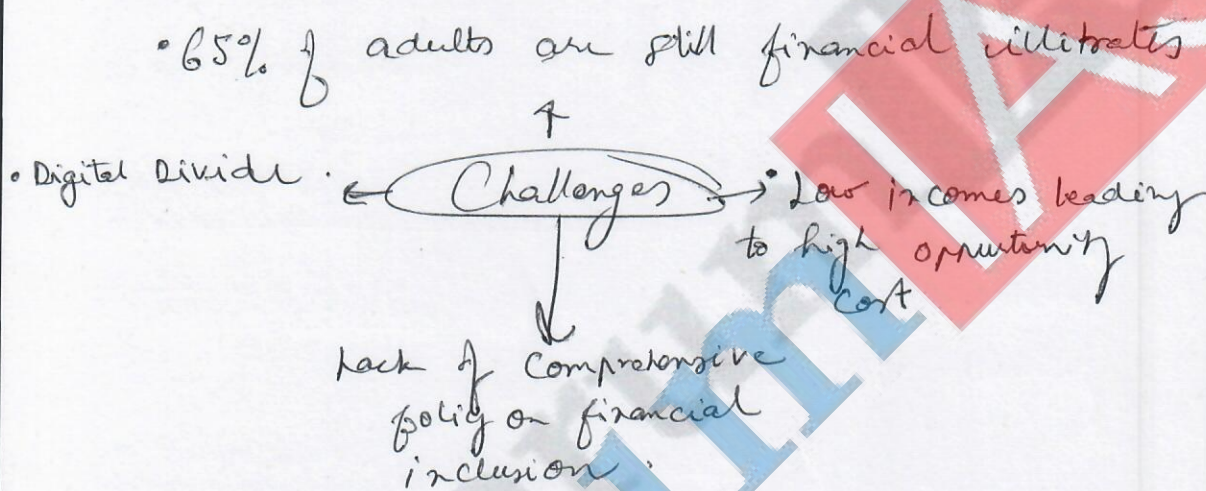 • 65% of adults are still financial illitrates
• Digital Divide .
Challenges
• Low incomes leading
to high opprutunity
cost
Lack of Comprehensive
policy on financial
inclusion .